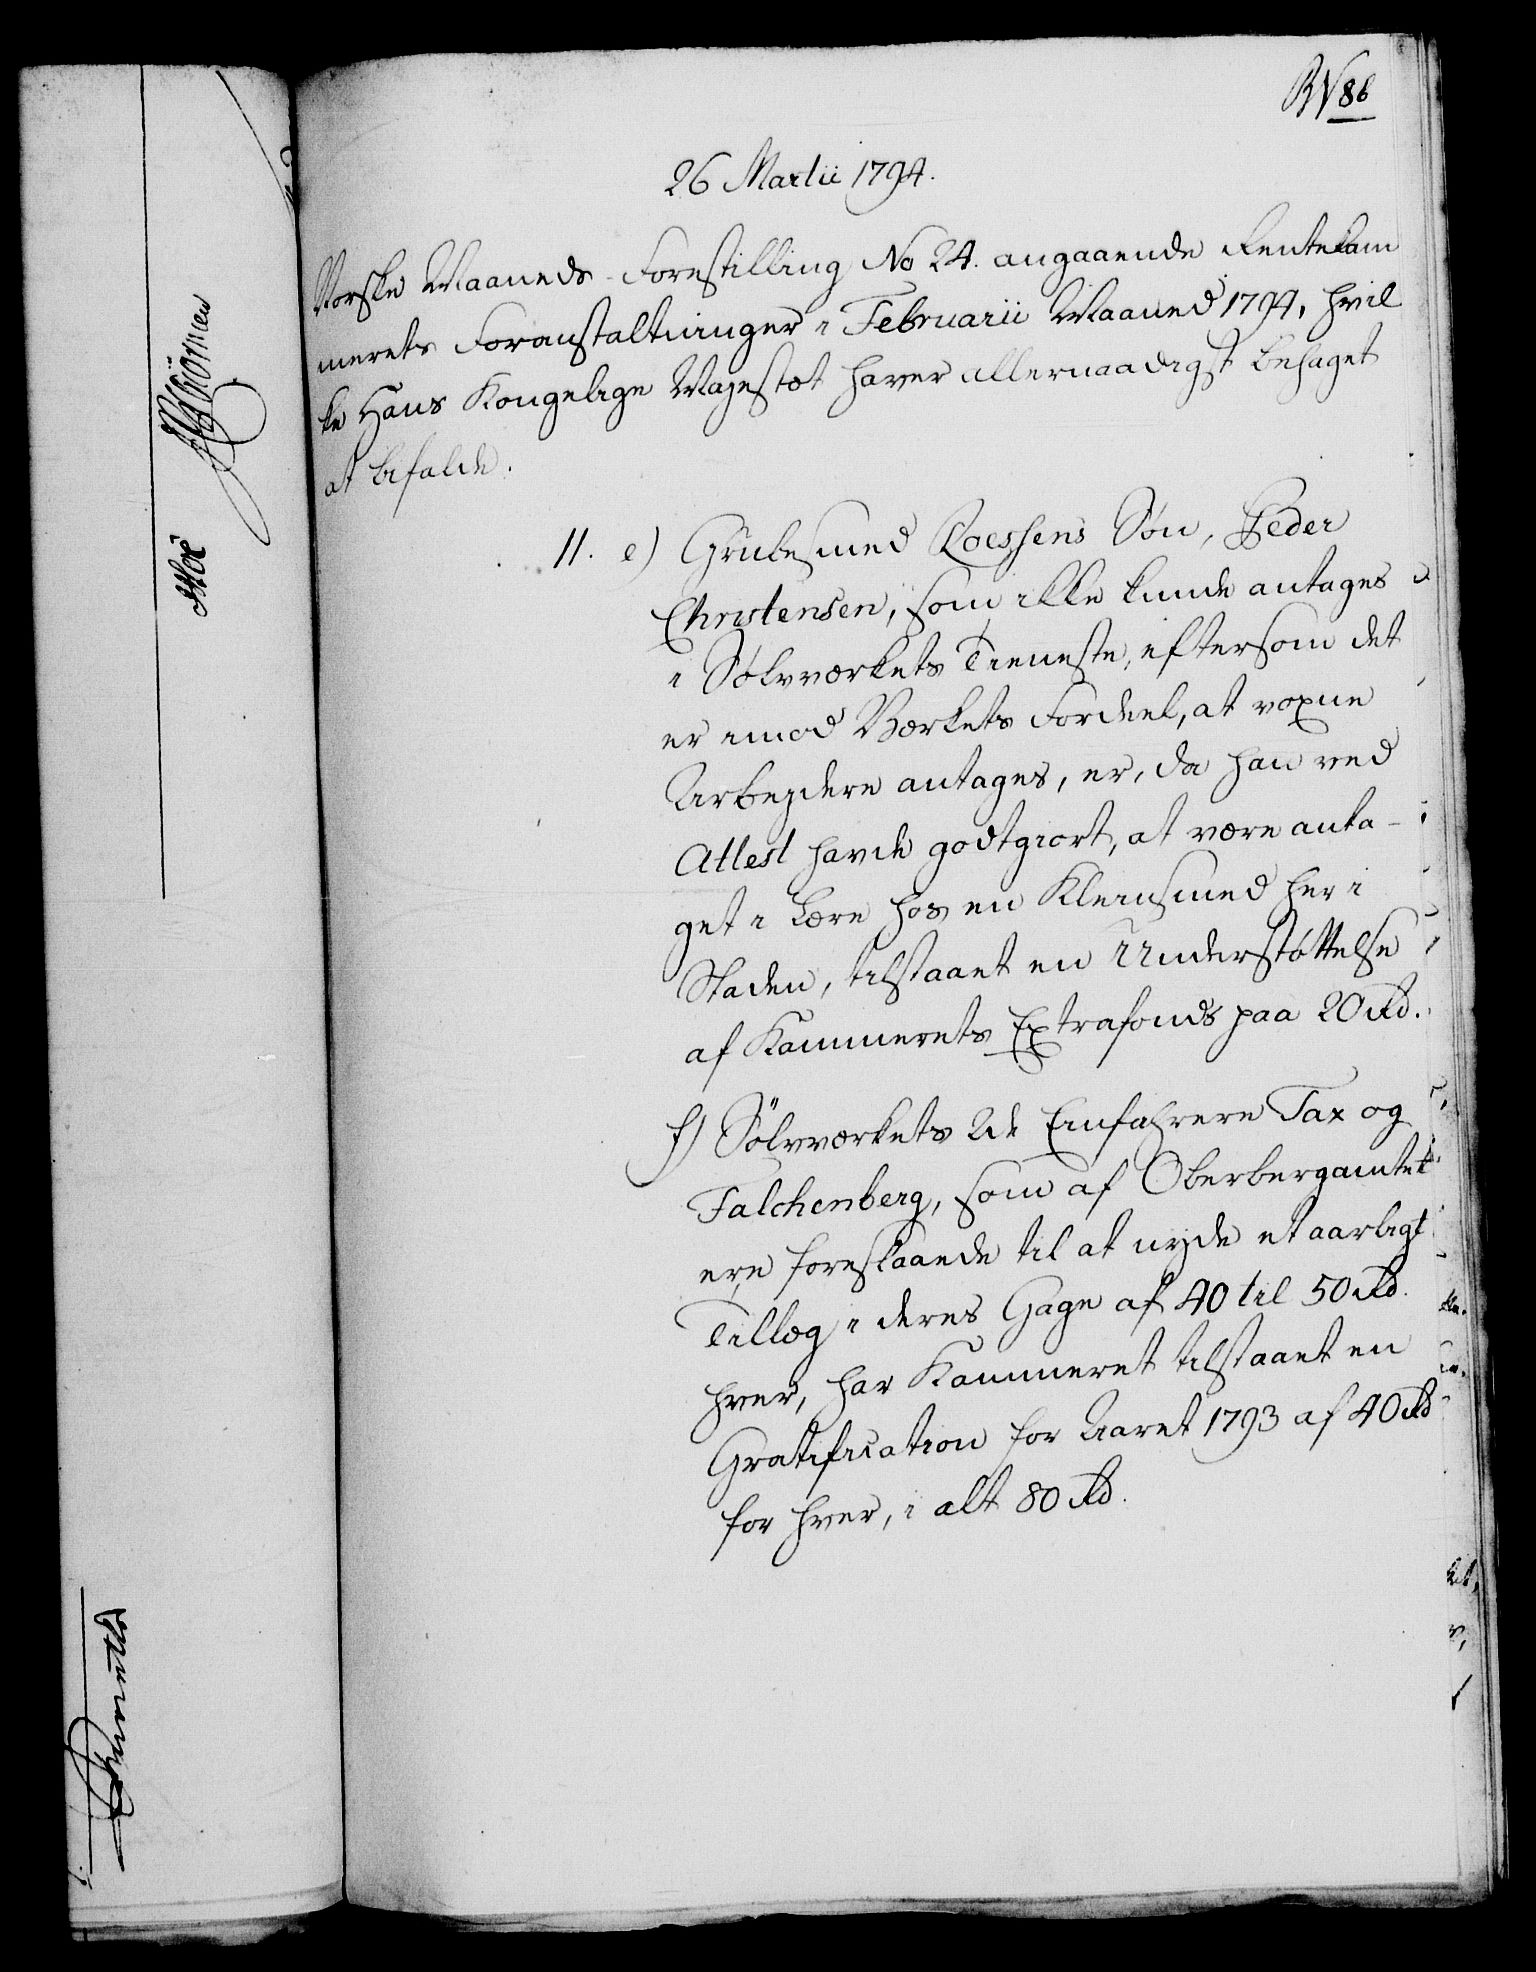 26 Martii 1794.
Norske Maaneds-Forestilling No 24. angaaende Rentekam
merets Foranstaltninger i Februarii Maaned 1794, hvil
ke Hans Kongelige Majestæt haver allernaadigst behaget
at bifalde.
11. e) Grubesmed Roessens Søn, Peder
Christensen, som ikke kunde antages
i Sølvværkets Tieneste, eftersom det
er imod Værkets Fordeel, at voxne
Arbejdere antages, er, da han ved
Attest havde godtgiort, at være anta-
get i Lære hos en Kleinsmed her i
Staden, tilstaaet en Understøttelse
af Kammerets Extrafonds paa 20 Rd.
f) Sølvværkets 2de Einfahrere Tax og
Falchenberg, som af Oberbergamtet
ere foreslaaede til at nyde et aarligt
Tillæg i deres Gage af 40 til 50 Rd.
hver, har Kammeret tilstaaet en
Gratification for Aaret 1793 af 40 Rd
for hver, i alt 80 Rd.